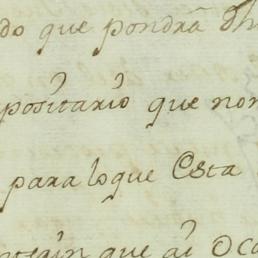 do que pondrá dh
positario que nom
para loque Esta
que ai oca